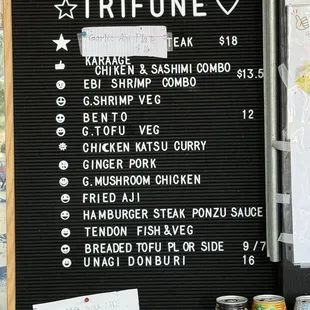 TRIFUNE
TEAK $18
KARAAGE
CHIKEN & SASHIMI COMBO $13.5
EBI SHRIMP COMBO
G.SHRIMP VEG
BENTO 12
G.TOFU VEG
CHICKEN KATSU CURRY
GINGER PORK
G.MUSHROOM CHICKEN
FRIED AJI
HAMBURGER STEAK PONZU SAUCE
TENDON FISH&VEG
BREADED TOFU PL OR SIDE 9/7
UNAGI DONBURI 16